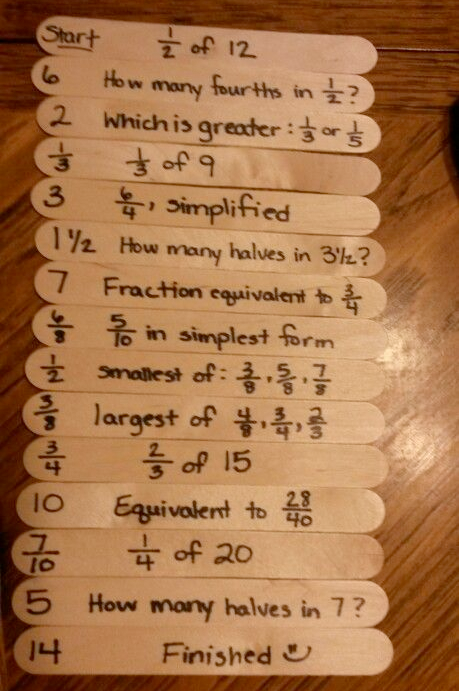 Start 1/2 of 12
6 How many fourths in 1/2?
2 Which is greater: 1/3 or 1/5
1/3 1/3 of 9
3 6/4, simplified
1 1/2 How many halves in 3 1/2?
7 Fraction equivalent to 3/4
6/8 5/10 in simplest form
1/2 smallest of: 3/8, 5/8, 7/8
3/8 largest of 4/8, 3/4, 2/3
3/4 2/3 of 15
10 Equivalent to 28/40
7/10 1/4 of 20
5 How many halves in 7?
14 Finished